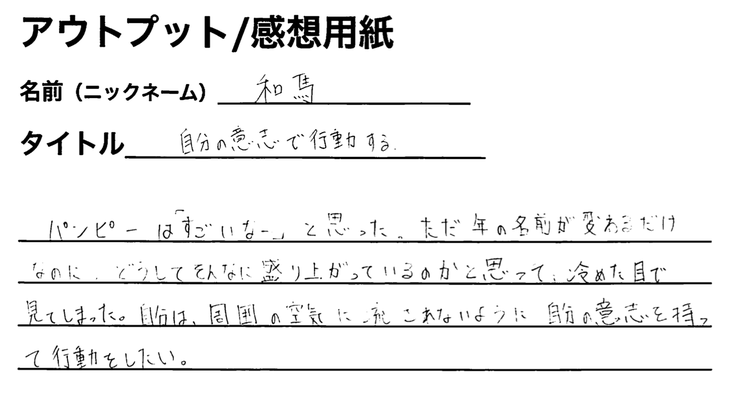 アウトプット/感想用紙
名前（ニックネーム） 和馬
タイトル 自分の意志で行動する.
パンピーは「すごいなー」と思った。ただ年の名前が変わるだけ
なのに、どうしてそんなに盛り上がっているのかと思って、冷めた目で
見てしまった。自分は、周囲の空気に流されないように自分の意志を持っ
て行動をしたい。